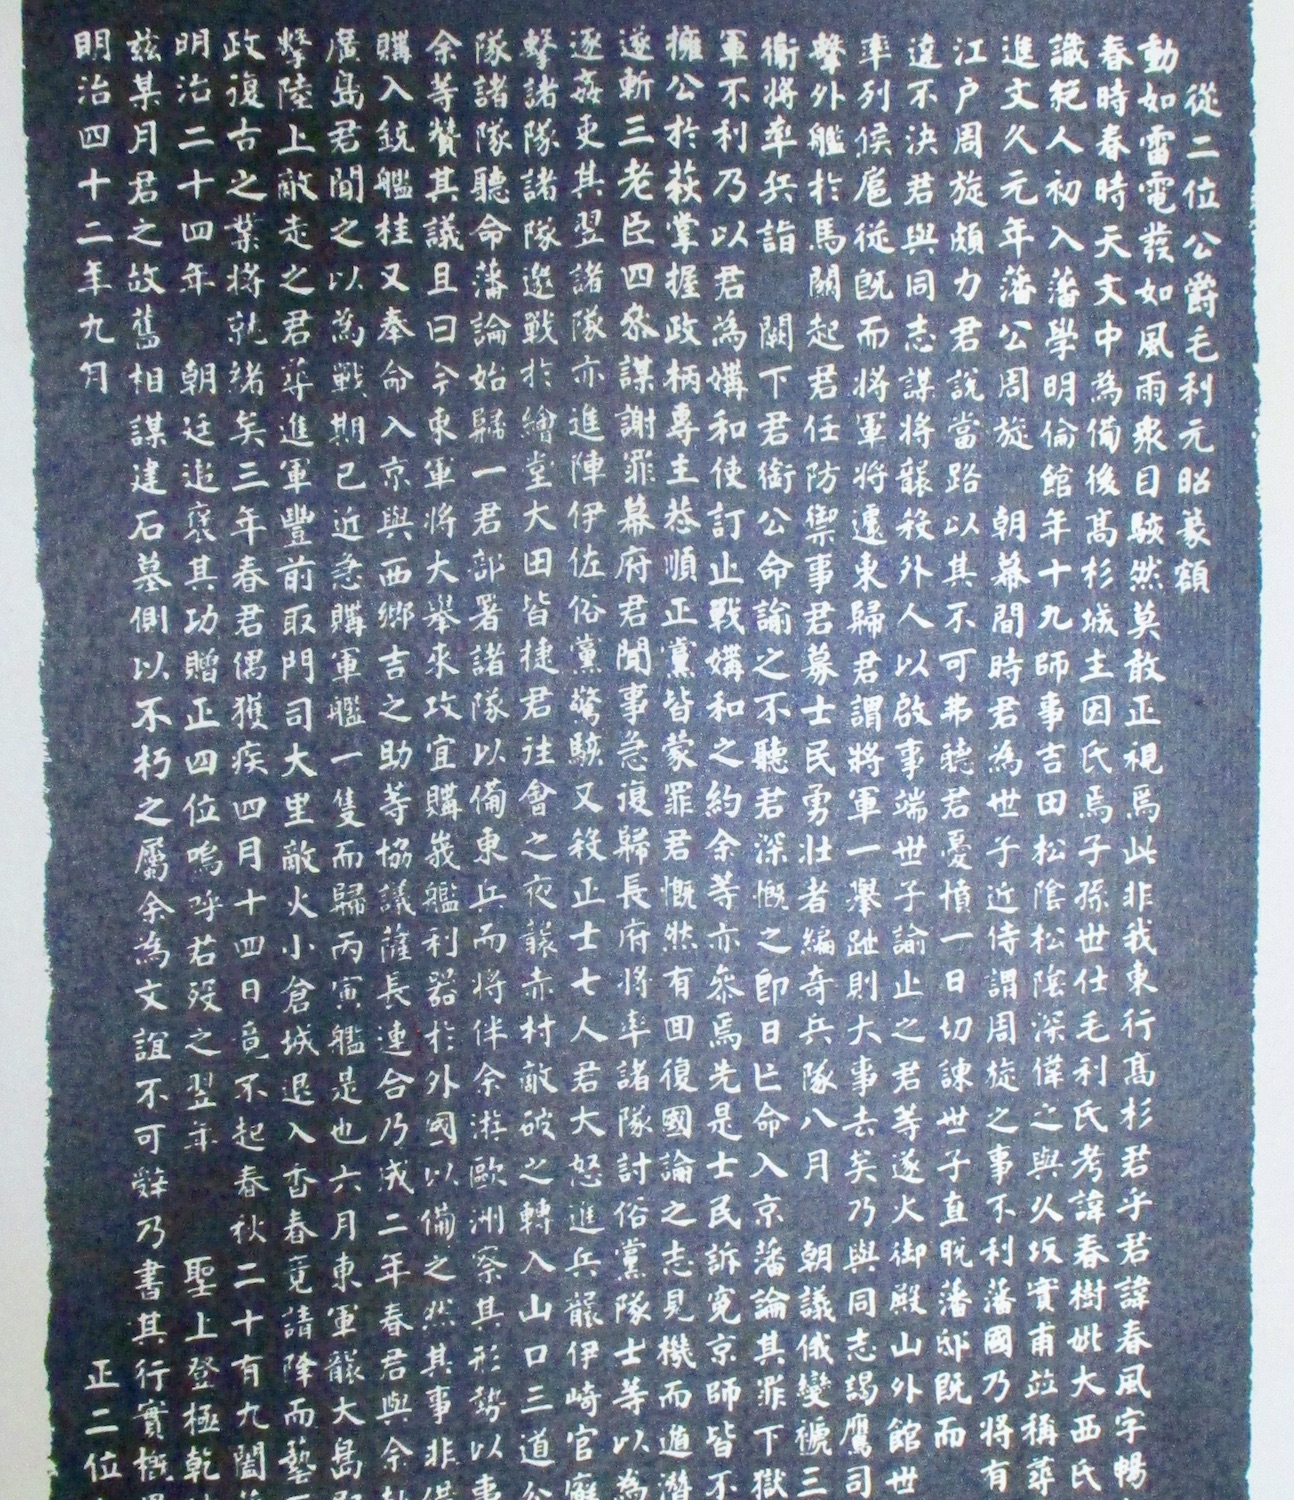 從二位公爵毛利元昭篆額
動如雷電發如風雨衆目駭然莫敢正視焉此非我東行高杉君乎君諱春風字暢
春時春時天文中為備後高杉城主因氏焉子孫世仕毛利氏考諱春樹妣大西氏
識範人初入藩學明倫館年十九師事吉田松陰松陰深偉之與久坂實甫並稱尋
進文久元年藩公周旋　朝幕間時君為世子近侍謂周旋之事不利藩國乃將有
江戶周旋頗力君說當路以其不可弗聽君憂憤一日切諫世子直脫藩邸既而
違不決君與同志謀將襲殺外人以啟事端世子諭止之君等遂火御殿山外館世
率列侯扈從既而將軍將遽東歸君謂將軍一舉趾則大事去矣乃與同志謁鷹司
擊外艦於馬關起君任防禦事君募士民勇壯者編奇兵隊八月　朝議俄變褫三
衛將率兵詣　闕下君銜公命諭之不聽君深慨之即日亡命入京藩論其罪下獄
軍不利乃以君為媾和使訂止戰媾和之約余等亦參焉先是士民訴冤京師皆不
擁公於萩掌握政柄專主恭順正黨皆蒙罪君慨然有回復國論之志見機而遁潛
遂斬三老臣四參謀謝罪幕府君聞事急復歸長府將率諸隊討俗黨隊士等以為
逐姦吏其翌諸隊亦進陣伊佐俗黨驚駭又殺正士七人君大怒進兵襲伊崎官廨
擊諸隊諸隊邀戰於繪堂大田皆捷君往會之夜襲赤村敵破之轉入山口三道
隊諸隊聽命藩論始歸一君部署諸隊以備東兵而將伴余游歐洲察其形勢以事
余等贊其議且曰今東軍將大舉來攻宜購巍艦利器於外國以備之然其事非
購入銃艦桂又奉命入京與西鄉吉之助等協議薩長連合乃成二年春君與余
廣島君聞之以為戰期已近急購軍艦一隻而歸丙寅艦是也六月東軍襲大島
擊陸上敵走之君尋進軍豐前取門司大里敵火小倉城退入香春竟請降而藝
政復古之業將就緒矣三年春君偶獲疾四月十四日竟不起春秋二十有九闔
明治二十四年　朝廷追褒其功贈正四位嗚呼君歿之翌年　聖上登極乾
茲某月君之故舊相謀建石墓側以不朽之屬余為文誼不可辭乃書其行實概
明治四十二年九月　正二位